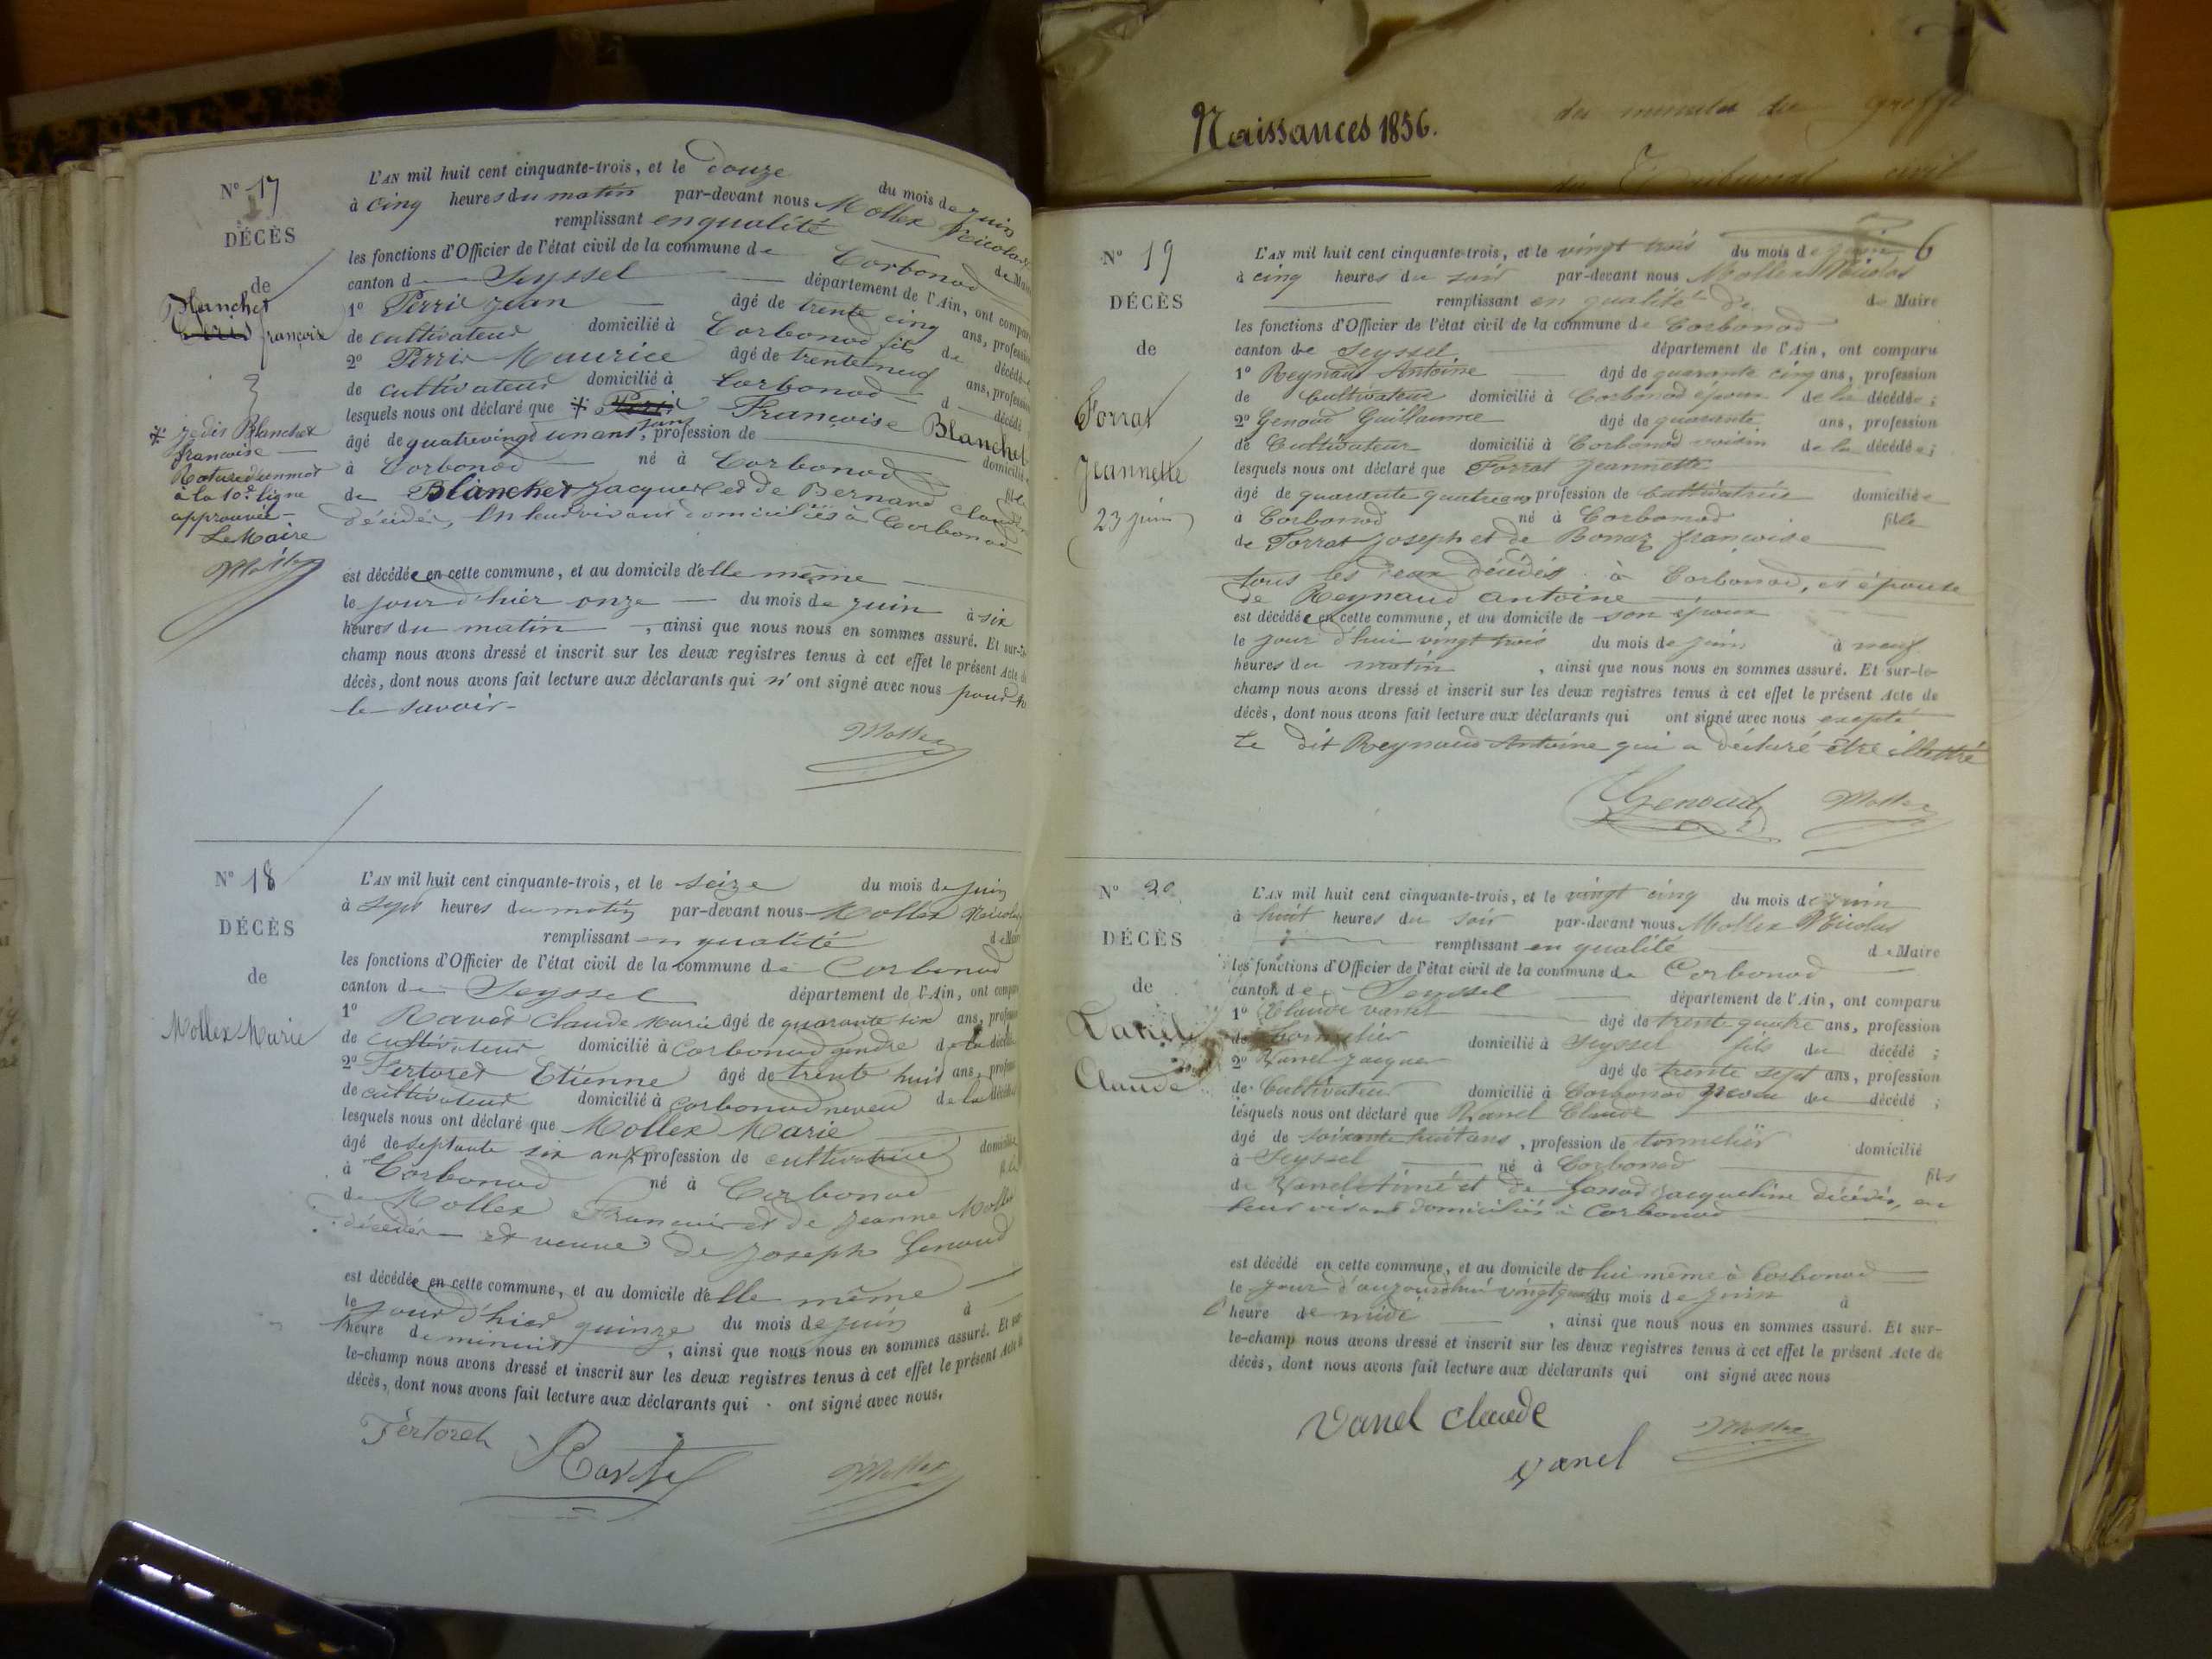 Naissances 1856.
des minutes du greffe
du Tribunal civil
N° 17
DÉCÈS
de
Blanchet
françoise
* je dis Blanchet
françoise
Rature d'un mot
à la 10e ligne
approuvée
Le Maire
Mollex
L'AN mil huit cent cinquante-trois, et le douze du mois de juin
à cinq heures du matin par-devant nous Mollex Nicolas
remplissant en qualité de Maire
les fonctions d'Officier de l'état civil de la commune de Corbonod
canton de Seyssel département de l'Ain, ont comparu
1° Perrin Jean âgé de trente cinq ans, profession
de cultivateur domicilié à Corbonod fils de décédée
2° Perrin Maurice âgé de trente neuf ans, profession
de cultivateur domicilié à Corbonod d décédé
lesquels nous ont déclaré que * Françoise Blanchet
âgé de quatrevingt un ans, profession de domicilié
à Corbonod né à Corbonod fille
de Blanchet Jacques et de Bernard Claudine
décédés, en leur vivant domiciliés à Corbonod
est décédée en cette commune, et au domicile d'elle même
le jour d'hier onze du mois de juin à six
heures du matin, ainsi que nous nous en sommes assuré. Et sur-le-
champ nous avons dressé et inscrit sur les deux registres tenus à cet effet le présent Acte de
décès, dont nous avons fait lecture aux déclarants qui n'ont signé avec nous pour ne
le savoir-
Mollex
N° 18
DÉCÈS
de
Mollex Marie
L'AN mil huit cent cinquante-trois, et le seize du mois de juin
à sept heures du matin par-devant nous Mollex Nicolas
remplissant en qualité de Maire
les fonctions d'Officier de l'état civil de la commune de Corbonod
canton de Seyssel département de l'Ain, ont comparu
1° Ravot Claude Marie âgé de quarante six ans, profession
de cultivateur domicilié à Corbonod gendre de la décédée
2° Fertoret Etienne âgé de trente huit ans, profession
de cultivateur domicilié à Corbonod neveu de la décédée
lesquels nous ont déclaré que Mollex Marie
âgé de septante six ans, profession de cultivatrice domiciliée
à Corbonod né à Corbonod fille
de Mollex François et de Jeanne Mollex
décédés et veuve de Joseph Genoud
est décédée en cette commune, et au domicile d'elle même
le jour d'hier quinze du mois de juin à
heure de minuit, ainsi que nous nous en sommes assuré. Et sur-
le-champ nous avons dressé et inscrit sur les deux registres tenus à cet effet le présent Acte de
décès, dont nous avons fait lecture aux déclarants qui ont signé avec nous.
Fertoret
Mollex
6
N° 19
DÉCÈS
de
Forrat
Jeannette
23 juin
L'AN mil huit cent cinquante-trois, et le vingt trois du mois de juin
à cinq heures du soir par-devant nous Mollex Nicolas
remplissant en qualité de de Maire
les fonctions d'Officier de l'état civil de la commune de Corbonod
canton de Seyssel département de l'Ain, ont comparu
1° Reynaud Antoine âgé de quarante cinq ans, profession
de Cultivateur domicilié à Corbonod époux de la décédée;
2° Genoud Guillaume âgé de quarante ans, profession
de Cultivateur domicilié à Corbonod voisin de la décédée;
lesquels nous ont déclaré que Forrat Jeannette
âgé de quarante quatre ans profession de cultivatrice domiciliée
à Corbonod né à Corbonod fille
de Forrat Joseph et de Bonaz françoise
tous les deux décédés à Corbonod, et épouse
de Reynaud antoine
est décédée en cette commune, et au domicile de son époux
le jour d'hui vingt trois du mois de juin à neuf
heures du matin, ainsi que nous nous en sommes assuré. Et sur-le-
champ nous avons dressé et inscrit sur les deux registres tenus à cet effet le présent Acte de
décès, dont nous avons fait lecture aux déclarants qui ont signé avec nous excepté
le dit Reynaud Antoine qui a déclaré être illettré
Genoud Mollex
N° 20
DÉCÈS
de
Vanel
Claude
L'AN mil huit cent cinquante-trois, et le vingt cinq du mois de juin
à huit heures du soir par-devant nous Mollex Nicolas
remplissant en qualité de Maire
les fonctions d'Officier de l'état civil de la commune de Corbonod
canton de Seyssel département de l'Ain, ont comparu
1° Claude vanel âgé de trente quatre ans, profession
de tonnelier domicilié à Seyssel fils du décédé;
2° Vanel Jacques âgé de trente sept ans, profession
de Cultivateur domicilié à Corbonod neveu du décédé;
lesquels nous ont déclaré que Vanel Claude
âgé de soixante huit ans, profession de tonnelier domicilié
à Seyssel né à Corbonod fils
de Vanel Aimé et de Genod Jacqueline décédés, en
leur vivant domiciliés à Corbonod
est décédé en cette commune, et au domicile de lui même à Corbonod
le jour d'aujourdhui du mois de juin à
l'heure de midi, ainsi que nous nous en sommes assuré. Et sur-
le-champ nous avons dressé et inscrit sur les deux registres tenus à cet effet le présent Acte de
décès, dont nous avons fait lecture aux déclarants qui ont signé avec nous
Vanel Claude Mollex
vanel